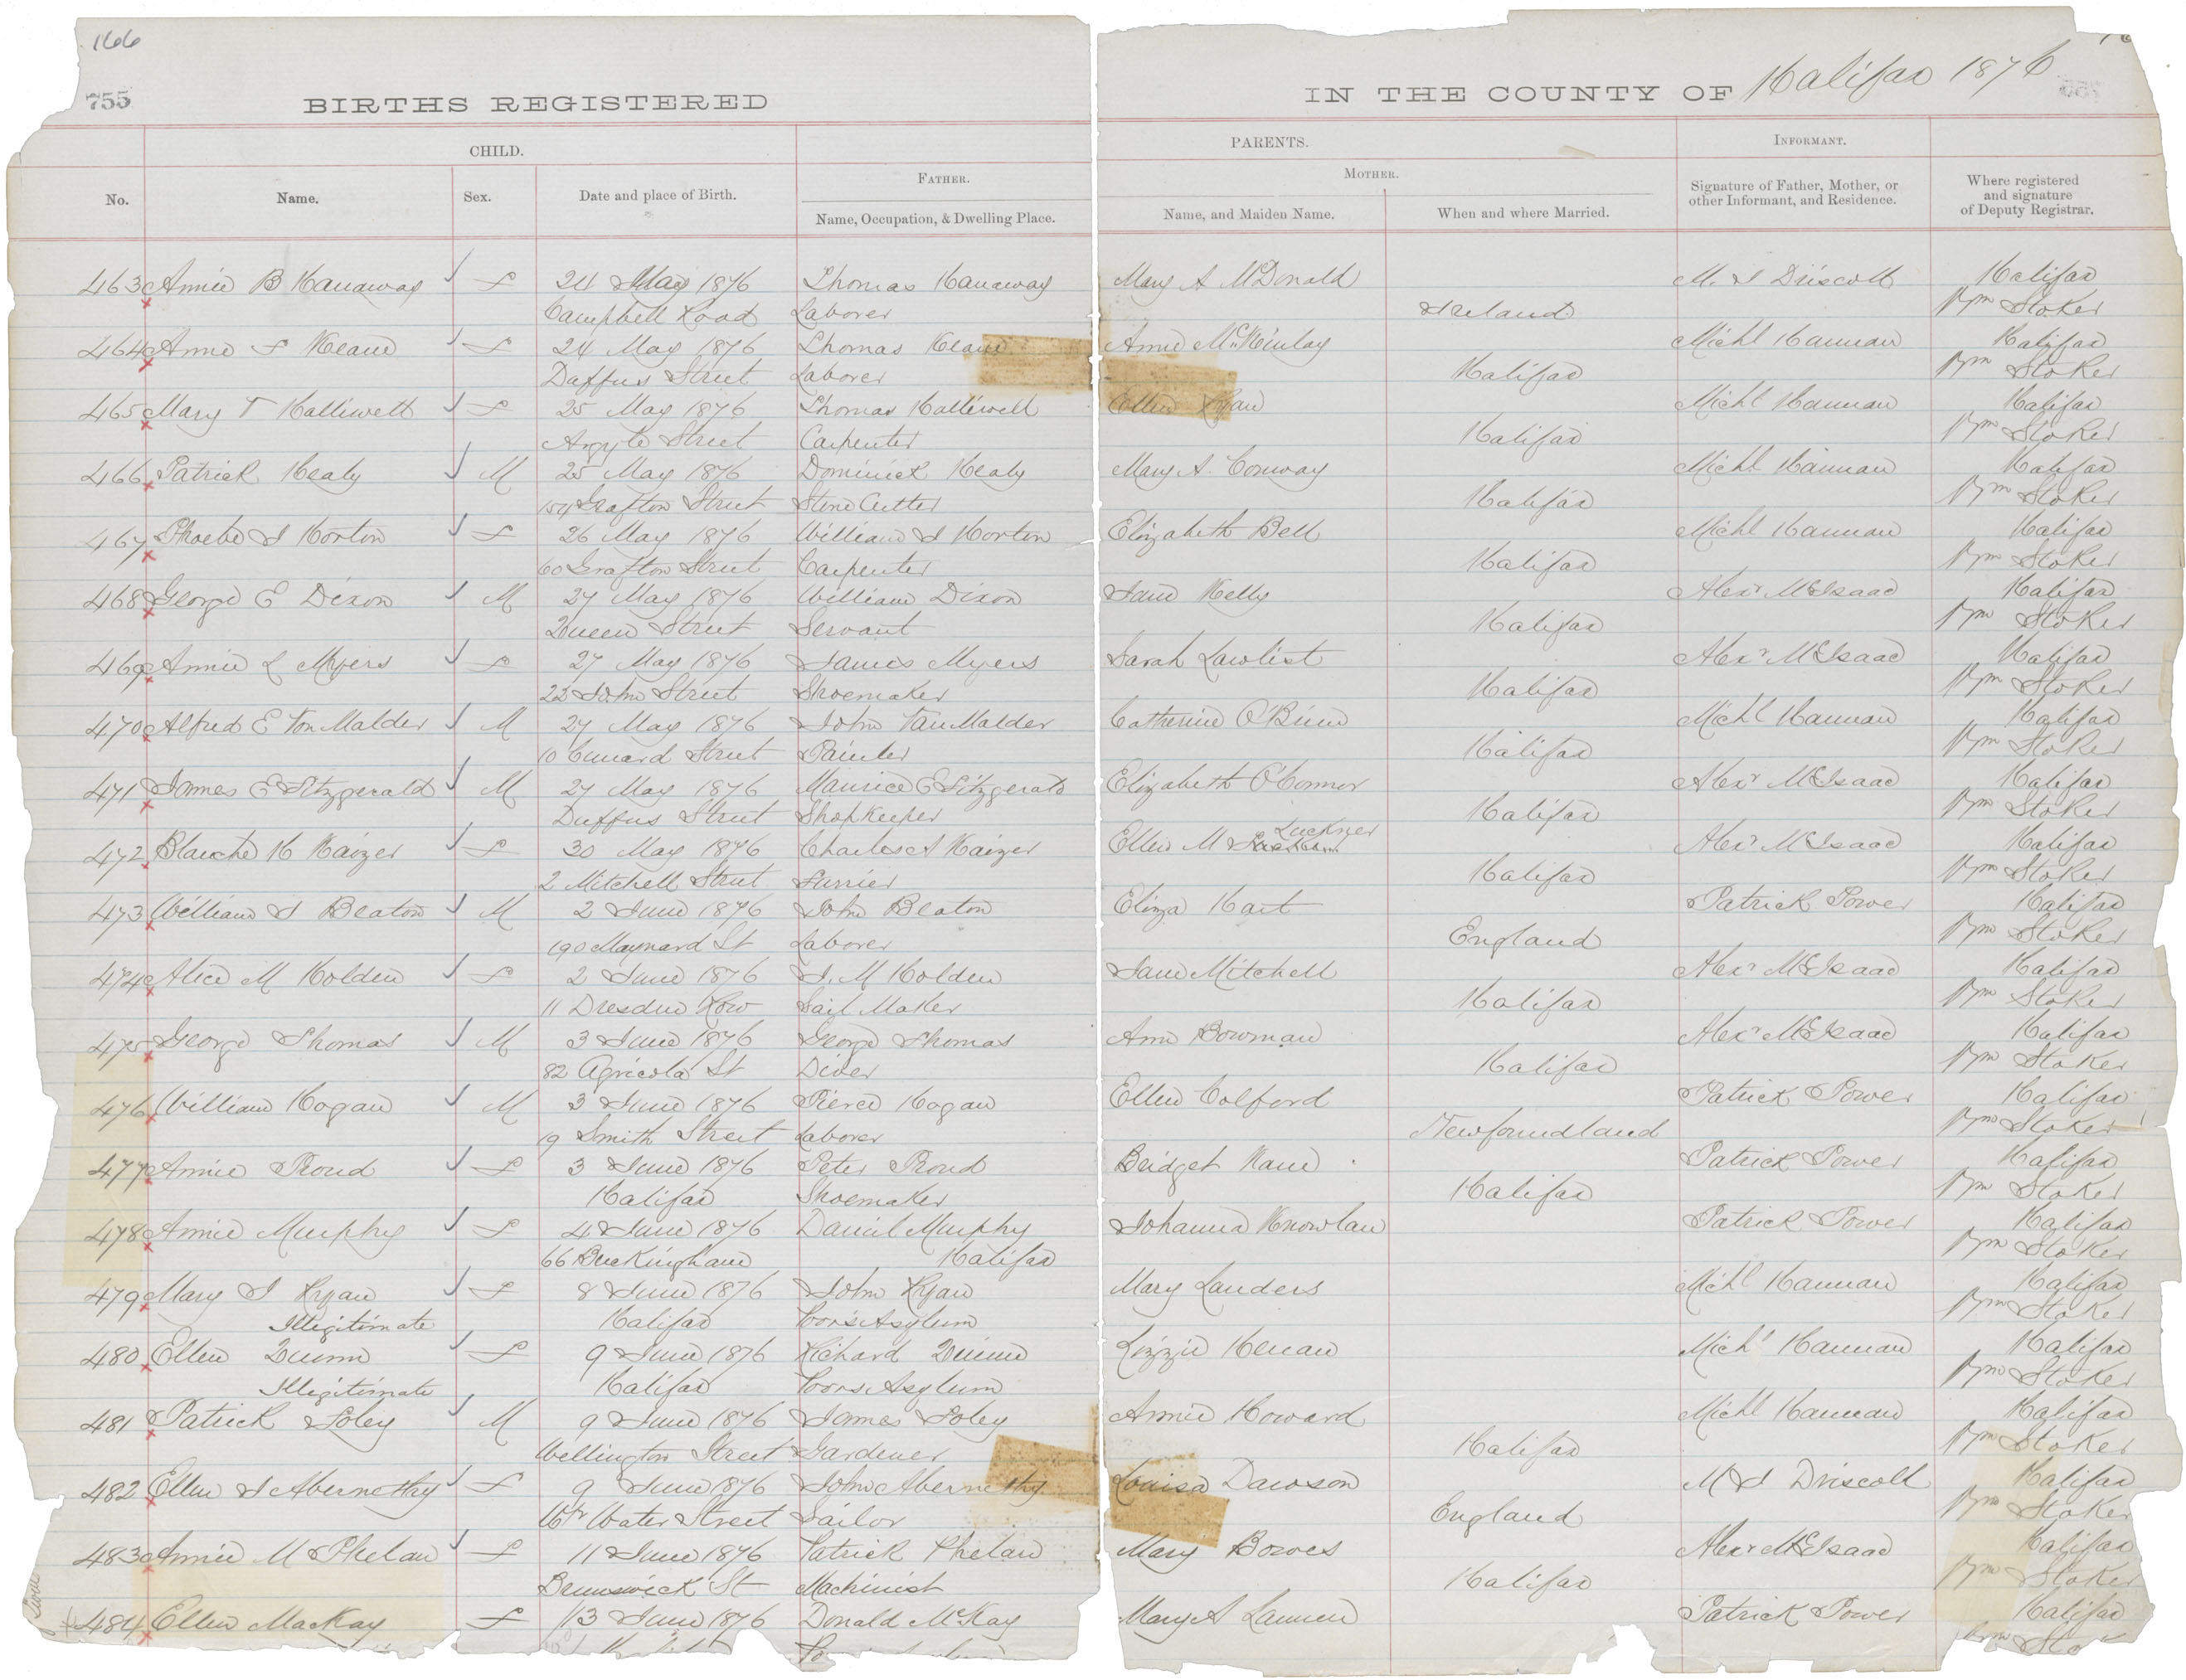 166
755
BIRTHS REGISTERED IN THE COUNTY OF Halifax 1876
CHILD. PARENTS. INFORMANT.
FATHER. MOTHER.
No. Name. Sex. Date and place of Birth. Name, Occupation, & Dwelling Place. Name, and Maiden Name. When and where Married. Signature of Father, Mother, or other Informant, and Residence. Where registered and signature of Deputy Registrar.
463 Annie B Hanaway f 24 May 1876 Thomas Hanaway Mary A McDonald M. J Driscoll Halifax
Campbell Road Laborer Ireland Wm Stoker
464 Annie F Keane f 24 May 1876 Thomas Keane Annie McKinlay Michl Hannan Halifax
Duffus Street Laborer Halifax Wm Stoker
465 Mary T Halliwell f 25 May 1876 Thomas Halliwell Ellen Ryan Michl Hannan Halifax
Argyle Street Carpenter Halifax Wm Stoker
466 Patrick Healy M 25 May 1876 Dominick Healy Mary A. Conway Michl Hannan Halifax
154 Grafton Street Stone Cutter Halifax Wm Stoker
467 Phoebe J Horton f 26 May 1876 William J Horton Elizabeth Bell Michl Hannan Halifax
60 Grafton Street Carpenter Halifax Wm Stoker
468 George E Dixon M 27 May 1876 William Dixon Jane Kelly Alexr McIsaac Halifax
Queen Street Servant Halifax Wm Stoker
469 Annie L Myers f 27 May 1876 James Myers Sarah Lawlist Alexr McIsaac Halifax
22 John Street Shoemaker Halifax Wm Stoker
470 Alfred E Von Malder M 27 May 1876 John VanMalder Catherine O'Brine Michl Hannan Halifax
10 Cunard Street Painter Halifax Wm Stoker
471 James E Fitzgerald M 27 May 1876 Maurice E Fitzgerald Elizabeth O'Connor Alexr McIsaac Halifax
Duffus Street Shopkeeper Halifax Wm Stoker
472 Blanche H Kaizer f 30 May 1876 Charles A Kaizer Ellen M Lackner Alexr McIsaac Halifax
2 Mitchell Street Furrier Halifax Wm Stoker
473 William J Beaton M 2 June 1876 John Beaton Eliza Hart Patrick Power Halifax
190 Maynard St Laborer England Wm Stoker
474 Alice M Holden f 2 June 1876 J. M Holden Jane Mitchell Alexr McIsaac Halifax
11 Dresden Row Sail Maker Halifax Wm Stoker
475 George Thomas M 3 June 1876 George Thomas Ann Bowman Alexr McIsaac Halifax
82 Agricola St Diver Halifax Wm Stoker
476 William Hogan M 3 June 1876 Pierce Hogan Ellen Colford Patrick Power Halifax
19 Smith Street Laborer Newfoundland Wm Stoker
477 Annie Proud f 3 June 1876 Peter Proud Bridget Kane Patrick Power Halifax
Halifax Shoemaker Halifax Wm Stoker
478 Annie Murphy f 4 June 1876 Daniel Murphy Johanna Knowlan Patrick Power Halifax
66 Buckingham Halifax Wm Stoker
479 Mary J Ryan f 8 June 1876 John Ryan Mary Landers Michl Hannan Halifax
Illegitimate Halifax Poors Asylum Wm Stoker
480 Ellen Quinn f 9 June 1876 Richard Quinn Lizzie Henan Michl Hannan Halifax
Illegitimate Halifax Poors Asylum Wm Stoker
481 Patrick Foley M 9 June 1876 James Foley Annie Howard Michl Hannan Halifax
Wellington Street Gardener Halifax Wm Stoker
482 Ellen J Abernethy f 9 June 1876 John Abernethy Louisa Dawson M J Driscoll Halifax
Water Street Sailor England Wm Stoker
483 Annie M Phelan f 11 June 1876 Patrick Phelan Mary Bowes Alexr McIsaac Halifax
Brunswick St Machinist Halifax Wm Stoker
484 Ellen MacKay f 13 June 1876 Donald McKay Mary A Lannen Patrick Power Halifax